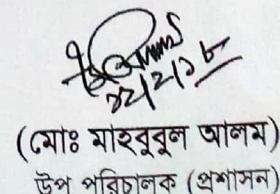 (মোঃ মাহবুবুল আলম)
উপ পরিচালক (প্রশাসন)